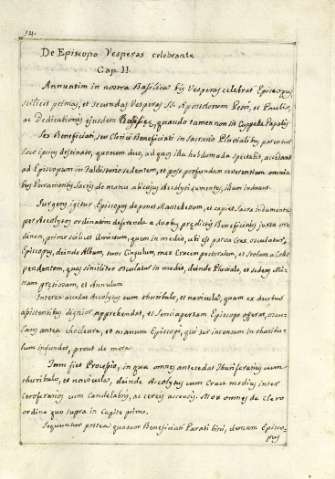 124.
De Episcopo Vesperas celebrante
Cap. II.
Annuatim in nostra Basilica bis Vesperas celebrat Episcopus,
scilicet primas, et secundas Vesperas SS. Apostolorum Petri, et Pauli,
ac Dedicationis ejusdem Basilicæ, quando tamen non sit Cappella Papalis.
Sex Beneficiati, seu Clerici Beneficiati in Sacrario Pluvialibus parantur
suo Episcopo
ad quos illa hebdomada spectabit, accedunt
ad Episcopum in Faldistorio sedentem, et post profundam reverentiam
Sacris de manu alicujus Acolyti
Surgens igitur Episcopus deponit Mantelletum, et capit Sacra indumenta
per Acolytos ordinatim deferenda a prædictis Beneficiatis juxta
dinem, primo scilicet Amictum, quem in medio, ubi est parva Crux, osculatur
Episcopus, deinde Albam, tum Cingulum, mox Crucem pectoralem, et Stolam a Collo
pendentem, quas similiter osculatur in medio, deinde Pluviale, et
nam pretiosam, et Annulum
Interea accedat Acolytus cum thuribulo, et navicula, quam ex duobus
assistentibus dignior apprehendat, et semiapertam Episcopo offerat, oscu-
lans antea cochleare, et manum Episcopi, qui sic incensum in thuribu-
lum infundet, prout de more
Tunc fiet Processio, in qua omnes antecedat thuriferarius cum
thuribulo, et navicula, deinde Acolytus cum Cruce medius inter
Ceroferarios cum Candelabris, ac cereis accensis. Mox omnes de Clero
ordine quo supra in Capite primo.
Sequuntur postea quatuor Beneficiati Parati bini, demum Episco-
pus